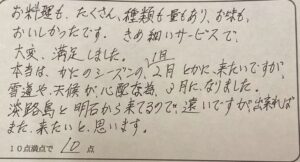 お料理も、たくさん、種類も量もあり、お味も、
おいしかったです。きめ細いサービスで、
大変、満足しました。
本当は、かにのシーズンの、1月2月とかに、来たいですが、
雪道や、天候が、心配な為、3月になりました。
淡路島と明石から来てるので、遠いですが、出来れば
また、来たいと、思います。
10点満点で 10 点